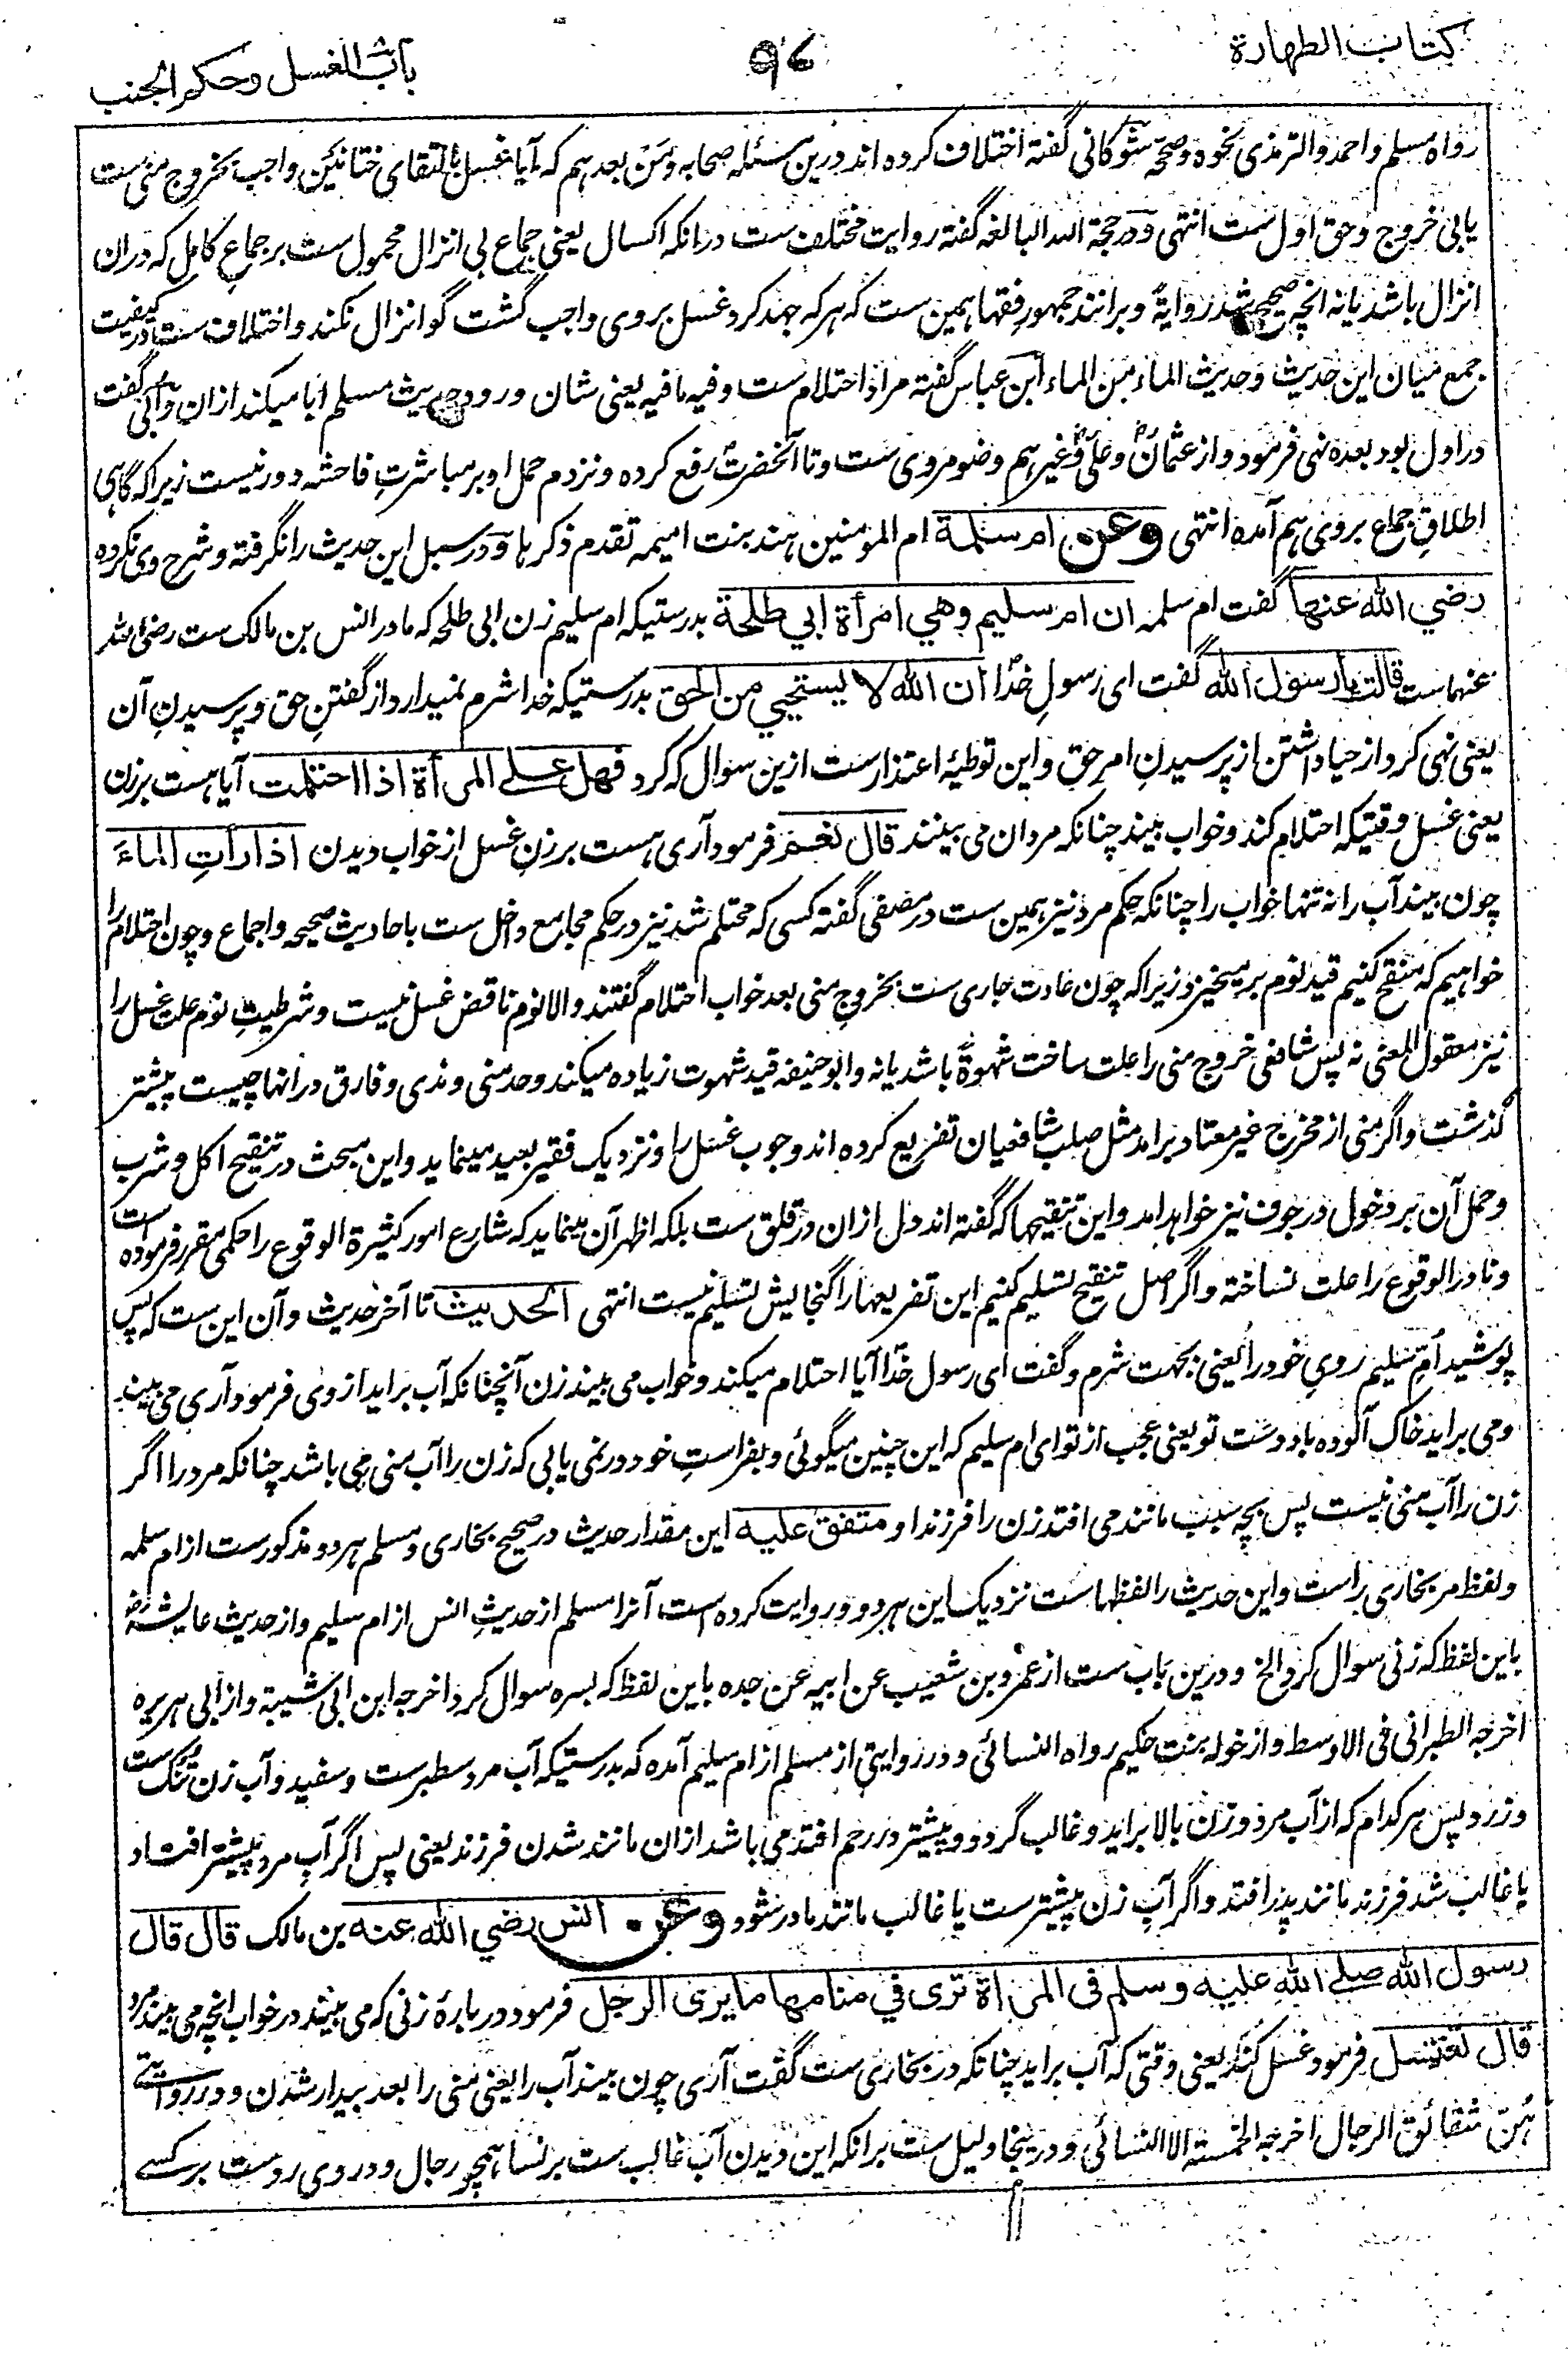 كتاب الطهارة
٩٧
باب الغسل وحكم الجنب
رواه مسلم واحمد والترمذی بنحوه وصححه شوکانی گفته اختلاف کرده اند درین مسئله صحابه ومن بعد هم که آیا غسل بالتقای ختانین واجب بخروج منی ست
یا بی خروج وحق اول ست انتهی ودر حجة الله البالغه گفته روایت مختلف ست درانکه اکسال یعنی جماع بی انزال محمول ست بر جماع کامل که دران
انزال باشد یا نه انچه صحیح شد روایةً وبرانند جمهور فقها همین ست که هر که جهد کرد غسل بر وی واجب گشت گو انزال نکند واختلاف ست در کیفیت
جمع میان این حدیث وحدیث الماء من الماء ابن عباس گفته مراد احتلام ست وفیه ما فیه یعنی شان ورود حدیث مسلم ابا میکند ازان وابی گفت
در اول بود بعده نهی فرمود واز عثمان وعلی وغیرهم وضو مروی ست وتا آنحضرت رفع کرده ونزدم حمل او بر مباشرت فاحشه دور نیست زیراکه گاهی
اطلاق جماع بر وی هم آمده انتهی وعن ام سلمة ام المومنین هند بنت امیمه تقدم ذکرها ودر سبل این حدیث را نگرفته وشرح وی نکرده
رضي الله عنها گفت ام سلمه ان ام سليم وهي امرأة ابي طلحة بدرستیکه ام سلیم زن ابی طلحه که مادر انس بن مالک ست رضی الله
عنهما ست قالت يا رسول الله گفت ای رسول خدا ان الله لا يستحيي من الحق بدرستیکه خدا شرم نمیدارد از گفتن حق وپرسیدن آن
یعنی نهی کرد از حیا داشتن از پرسیدن امر حق واین توطیهٔ اعتذار ست ازین سوال که کرد فهل على المرأة اذا احتلمت آیا هست بر زن
یعنی غسل وقتیکه احتلام کند وخواب بیند چنانکه مردان می بینند قال نعم فرمود آری هست بر زن غسل از خواب دیدن اذا رأت الماءَ
چون بیند آب را نه تنها خواب را چنانکه حکم مرد نیز همین ست در مصفی گفته کسی که محتلم شد نیز در حکم مجامع داخل ست باحادیث صحیحه واجماع وچون احتلام را
خواهیم که منقح کنیم قید نوم بر میخیزد زیراکه چون عادت جاری ست بخروج منی بعد خواب احتلام گفتند والا نوم ناقض غسل نیست وشرطیت نوم علت غسل را
نیز معقول المعنی نه پس شافعی خروج منی را علت ساخت شهوةً باشد یا نه وابو حنیفه قید شهوت زیاده میکند وحد منی ومذی وفارق در انها چیست پیشتر
گذشت واگر منی از مخرج غیر معتاد برامد مثل صلب شافعیان تفریع کرده اند وجوب غسل را ونزدیک فقیر بعید مینماید واین مبحث در تنقیح اکل وشرب
وحمل آن بر دخول در جوف نیز خواهد آمد واین تنقیحها که گفته اند دل ازان در قلق ست بلکه اظهر آن مینماید که شارع امور کثیرة الوقوع را حکمی مقرر فرموده است
ونادر الوقوع را علت نساخته واگر اصل تنقیح تسلیم کنیم این تفریعها را گنجایش تسلیم نیست انتهی الحديث تا آخر حدیث وآن این ست که پس
پوشید ام سلیم روی خود را یعنی بجهت شرم وگفت ای رسول خدا آیا احتلام میکند وخواب می بیند زن آنچنانکه آب براید از وی فرمود آری می بیند
ومی براید خاک آلوده باد دست تو یعنی عجب از تو ای ام سلیم که این چنین میگوئی وبفراست خود در نمی یابی که زن را آب منی می باشد چنانکه مرد را اگر
زن را آب منی نیست پس بچه سبب مانند می افتد زن را فرزند او متفق عليه این مقدار حدیث در صحیح بخاری ومسلم هر دو مذکور ست از ام سلمه
ولفظ مر بخاری راست واین حدیث را لفظها ست نزدیک این هر دو وروایت کرده است آنرا مسلم از حدیث انس از ام سلیم واز حدیث عایشه رض
باین لفظ که زنی سوال کرد الخ ودرین باب ست از عمرو بن شعیب عن ابیه عن جده باین لفظ که بسره سوال کرد اخرجه ابن ابی شیبة واز ابی هریره
اخرجه الطبرانی فی الاوسط واز خوله بنت حکیم رواه النسائی ودر روایتی از مسلم از ام سلیم آمده که بدرستیکه آب مرد سطبر ست وسفید وآب زن تنک ست
وزرد پس هر کدام که از آب مرد وزن بالا براید وغالب گردد وپیشتر در رحم افتد می باشد ازان مانند شدن فرزند یعنی پس اگر آب مرد پیشتر افتاد
یا غالب شد فرزند مانند پدر افتد واگر آب زن پیشتر ست یا غالب مانند مادر شود وعن انس رضي الله عنه بن مالک قال قال
رسول الله صلى الله عليه وسلم في المرأة ترى في منامها ما يرى الرجل فرمود در بارهٔ زنی که می بیند در خواب انچه می بیند مرد
قال تغتسل فرمود غسل کند یعنی وقتی که آب براید چنانکه در بخاری ست گفت آری چون بیند آب را یعنی منی را بعد بیدار شدن ودر روایتی
هُنّ شقائق الرجال اخرجه الخمسة الا النسائی ودرینجا دلیل ست برانکه این دیدن آب غالب ست بر نسا همچو رجال ودر وی رد ست بر کسی